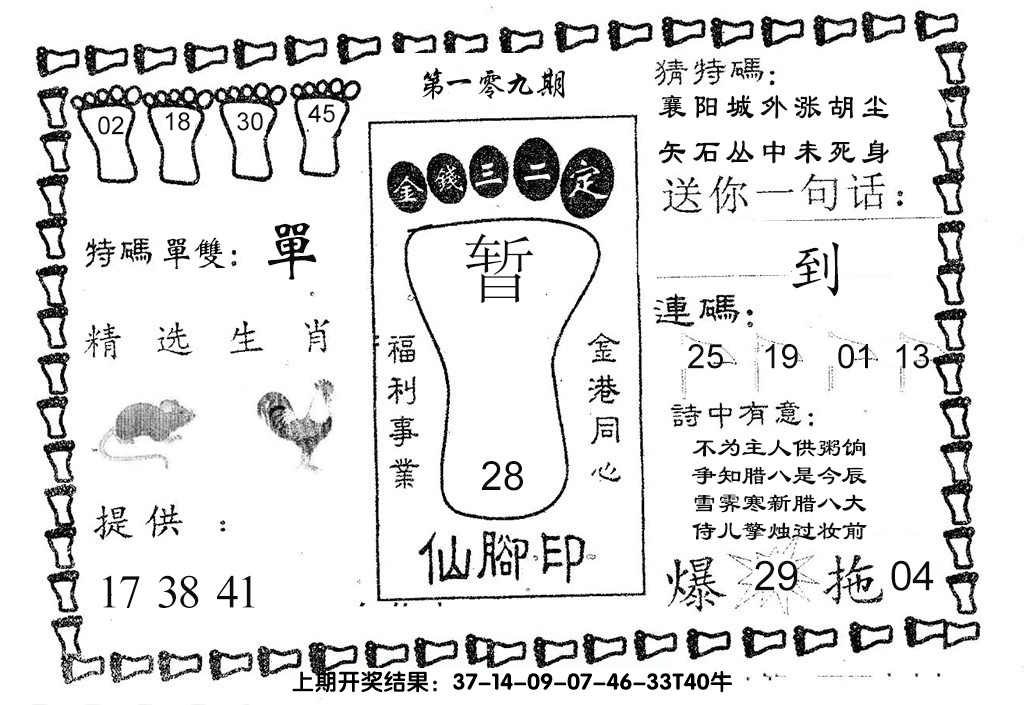 第一零九期
02 18 30 45
特碼單雙: 單
精选生肖
提供 :
17 38 41
金錢三二定
暂
福利事業
金港同心
28
仙腳印
猜特碼:
襄阳城外涨胡尘
矢石丛中未死身
送你一句话:
到
連碼:
25 19 01 13
詩中有意:
不为主人供粥饷
争知腊八是今辰
雪霁寒新腊八天
侍儿擎烛过妆前
爆 29 拖 04
上期开奖结果：37-14-09-07-46-33T40牛